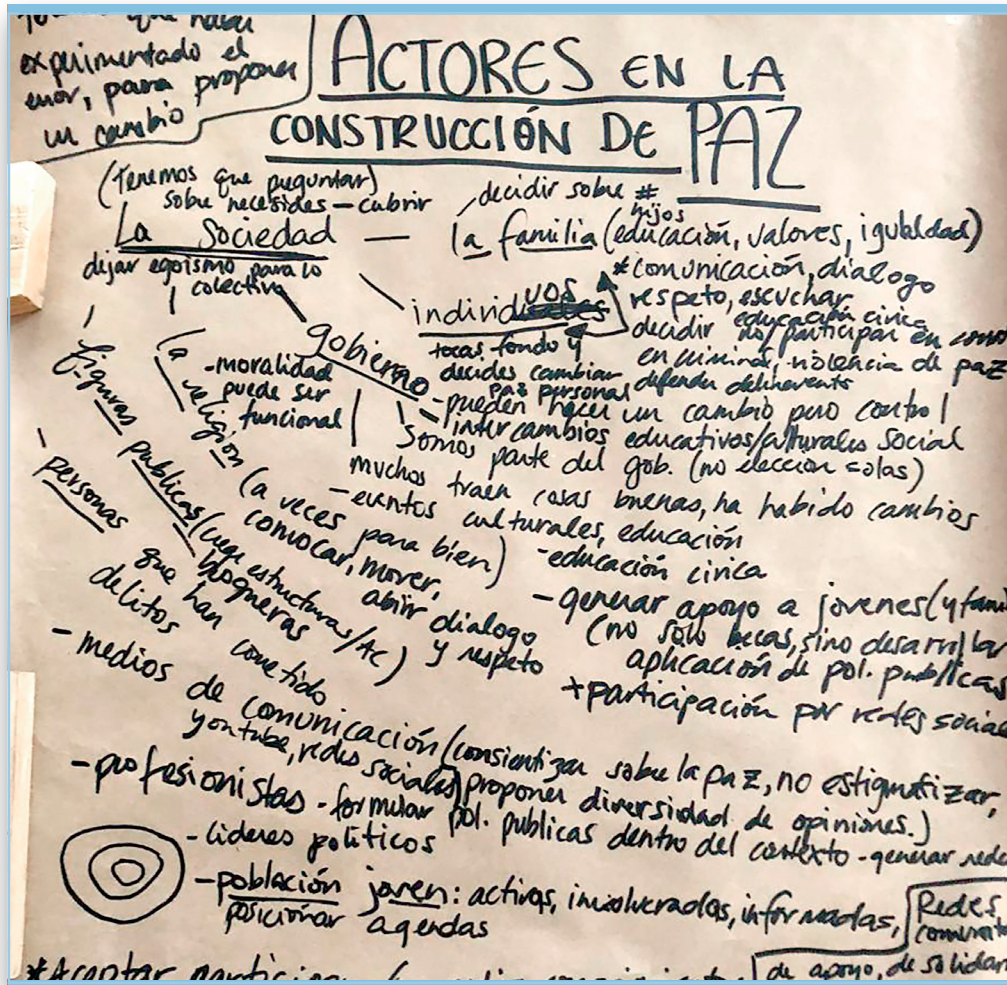 experimentado el
error, para proponer
un cambio
ACTORES EN LA
CONSTRUCCIÓN DE PAZ
(Tenemos que preguntar)
sobre necesides – cubrir
La Sociedad
dejar egoismo para lo
colectivo
decidir sobre #
hijos
la familia (educación, valores, igualdad)
*comunicación, dialogo
respeto, escuchar
educación civica
decidir no participar en
en criminal, violencia de paz
defender
individuos
tocas fondo y
decides cambiar
paz personal
gobierno
- pueden hacer un cambio pero control
social
- intercambios educativos/culturales
Somos parte del gob. (no eleccion solas)
muchos traen cosas buenas, ha habido cambios
- eventos culturales, educación
- educación civica
- generar apoyo a jovenes (y fam
(no solo becas, sino desarrollar
aplicación de pol. publicas
+ participación por redes social
la religion (a veces para bien)
- moralidad
puede ser
funcional
convocar, mover,
abrir dialogo
y respeto
figuras publicas (crear estructuras/AC)
blogueras
- personas que han cometido
delitos
- medios de comunicación (consientizar sobre la paz, no estigmatizar,
youtube, redes sociales) proponer diversidad de opiniones.)
- profesionistas - formular pol. publicas dentro del contexto - generar rede
- lideres politicos
- población joven: activos, involucrados, informadas,
posicionar agendas
Redes
de apoyo, de solidari
*Aceptar